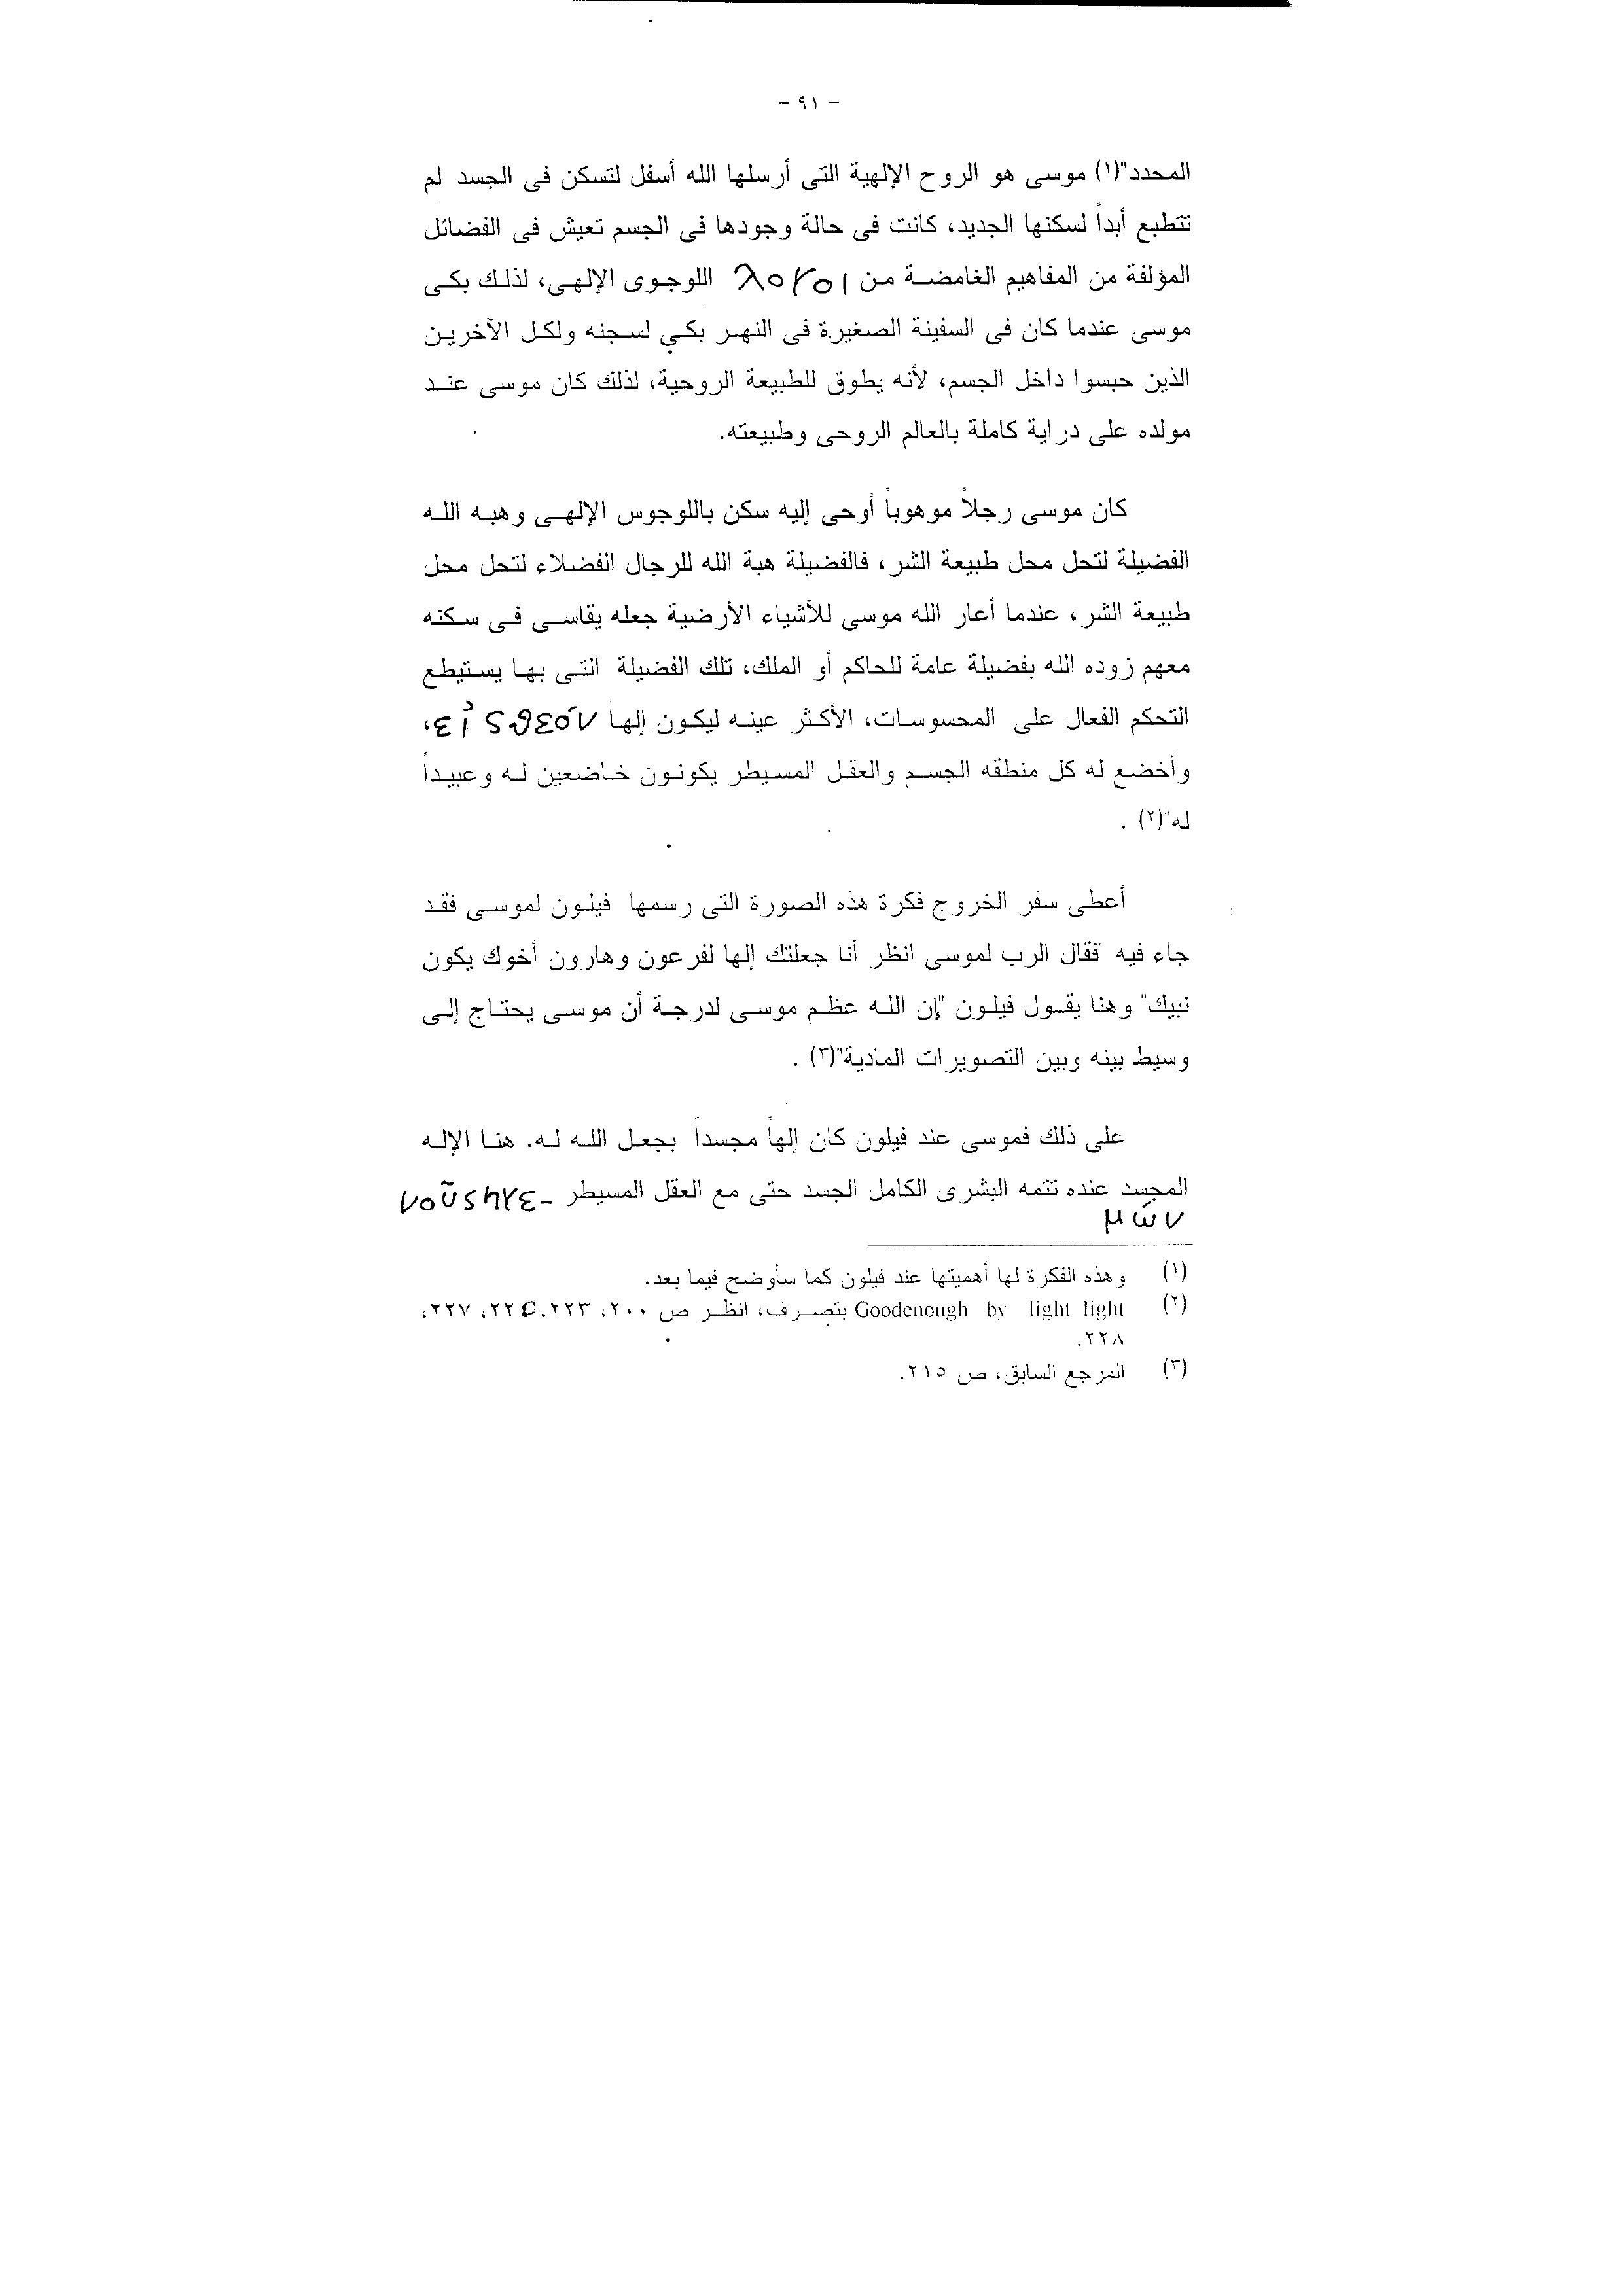 - ٩١ -
المحدد"(١) موسى هو الروح الإلهية التى أرسلها الله أسفل لتسكن فى الجسد لم
تتطبع أبداً لسكنها الجديد، كانت فى حالة وجودها فى الجسم تعيش فى الفضائل
المؤلفة من المفاهيم الغامضة من λογοι اللوجوى الإلهى، لذلك بكى
موسى عندما كان فى السفينة الصغيرة فى النهر بكي لسجنه ولكل الآخرين
الذين حبسوا داخل الجسم، لأنه يطوق للطبيعة الروحية، لذلك كان موسى عند
مولده على دراية كاملة بالعالم الروحى وطبيعته.
كان موسى رجلاً موهوباً أوحى إليه سكن باللوجوس الإلهى وهبه الله
الفضيلة لتحل محل طبيعة الشر، فالفضيلة هبة الله للرجال الفضلاء لتحل محل
طبيعة الشر، عندما أعار الله موسى للأشياء الأرضية جعله يقاسى فى سكنه
معهم زوده الله بفضيلة عامة للحاكم أو الملك، تلك الفضيلة التى بها يستيطع
التحكم الفعال على المحسوسات، الأكثر عينه ليكون إلهاً εἰς θεόν،
وأخضع له كل منطقه الجسم والعقل المسيطر يكونون خاضعين له وعبيداً
له"(٢) .
أعطى سفر الخروج فكرة هذه الصورة التى رسمها فيلون لموسى فقد
جاء فيه "فقال الرب لموسى انظر أنا جعلتك إلها لفرعون وهارون أخوك يكون
نبيك" وهنا يقول فيلون "إن الله عظم موسى لدرجة أن موسى يحتاج إلى
وسيط بينه وبين التصويرات المادية"(٣) .
على ذلك فموسى عند فيلون كان إلهاً مجسداً بجعل الله له. هنا الإله
المجسد عنده تتمه البشرى الكامل الجسد حتى مع العقل المسيطر
(١) وهذه الفكرة لها أهميتها عند فيلون كما سأوضح فيما بعد.
(٢) Goodenough by light light بتصرف، انظر ص ٢٠٠، ٢٢٣، ٢٢٧،
٢٢٨.
(٣) المرجع السابق، ص ٢١٥.